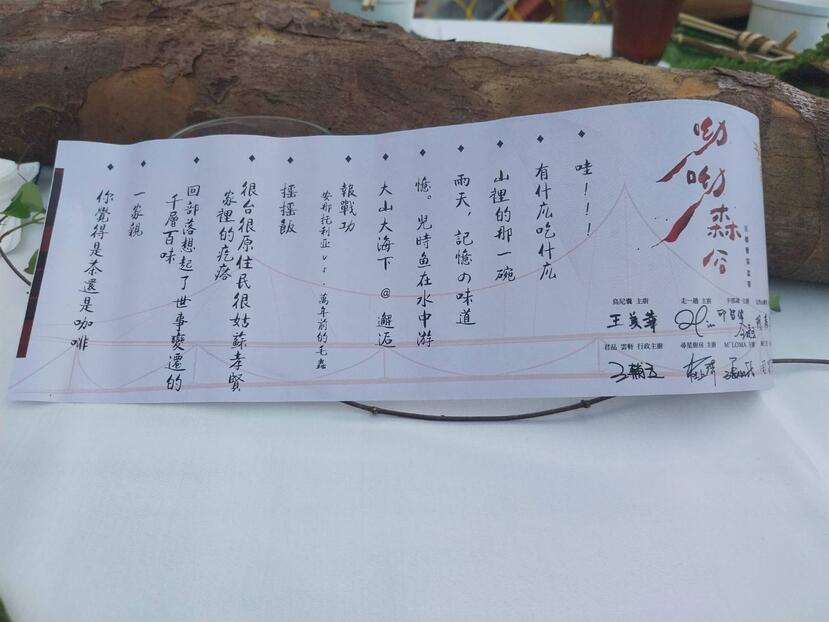 呦呦森谷
哇!!!
有什庅吃什庅
山裡的那一碗
雨天,記憶の味道
憶。兒時鱼在水中游
大山大海下 @ 邂逅
報戰功
安那托利亚 vs. 萬年前的毛蟲
搖搖飯
很台很原住民很姑蘇孝賢
家裡的疙瘩
回部落想起了世事變遷的
千層百味
一家親
你覺得是茶還是咖啡
主廚
走一趟 主廚
主廚
王美華
君品 雲軒 行政主廚
尋星廚房 主廚
M'LOMA 主廚